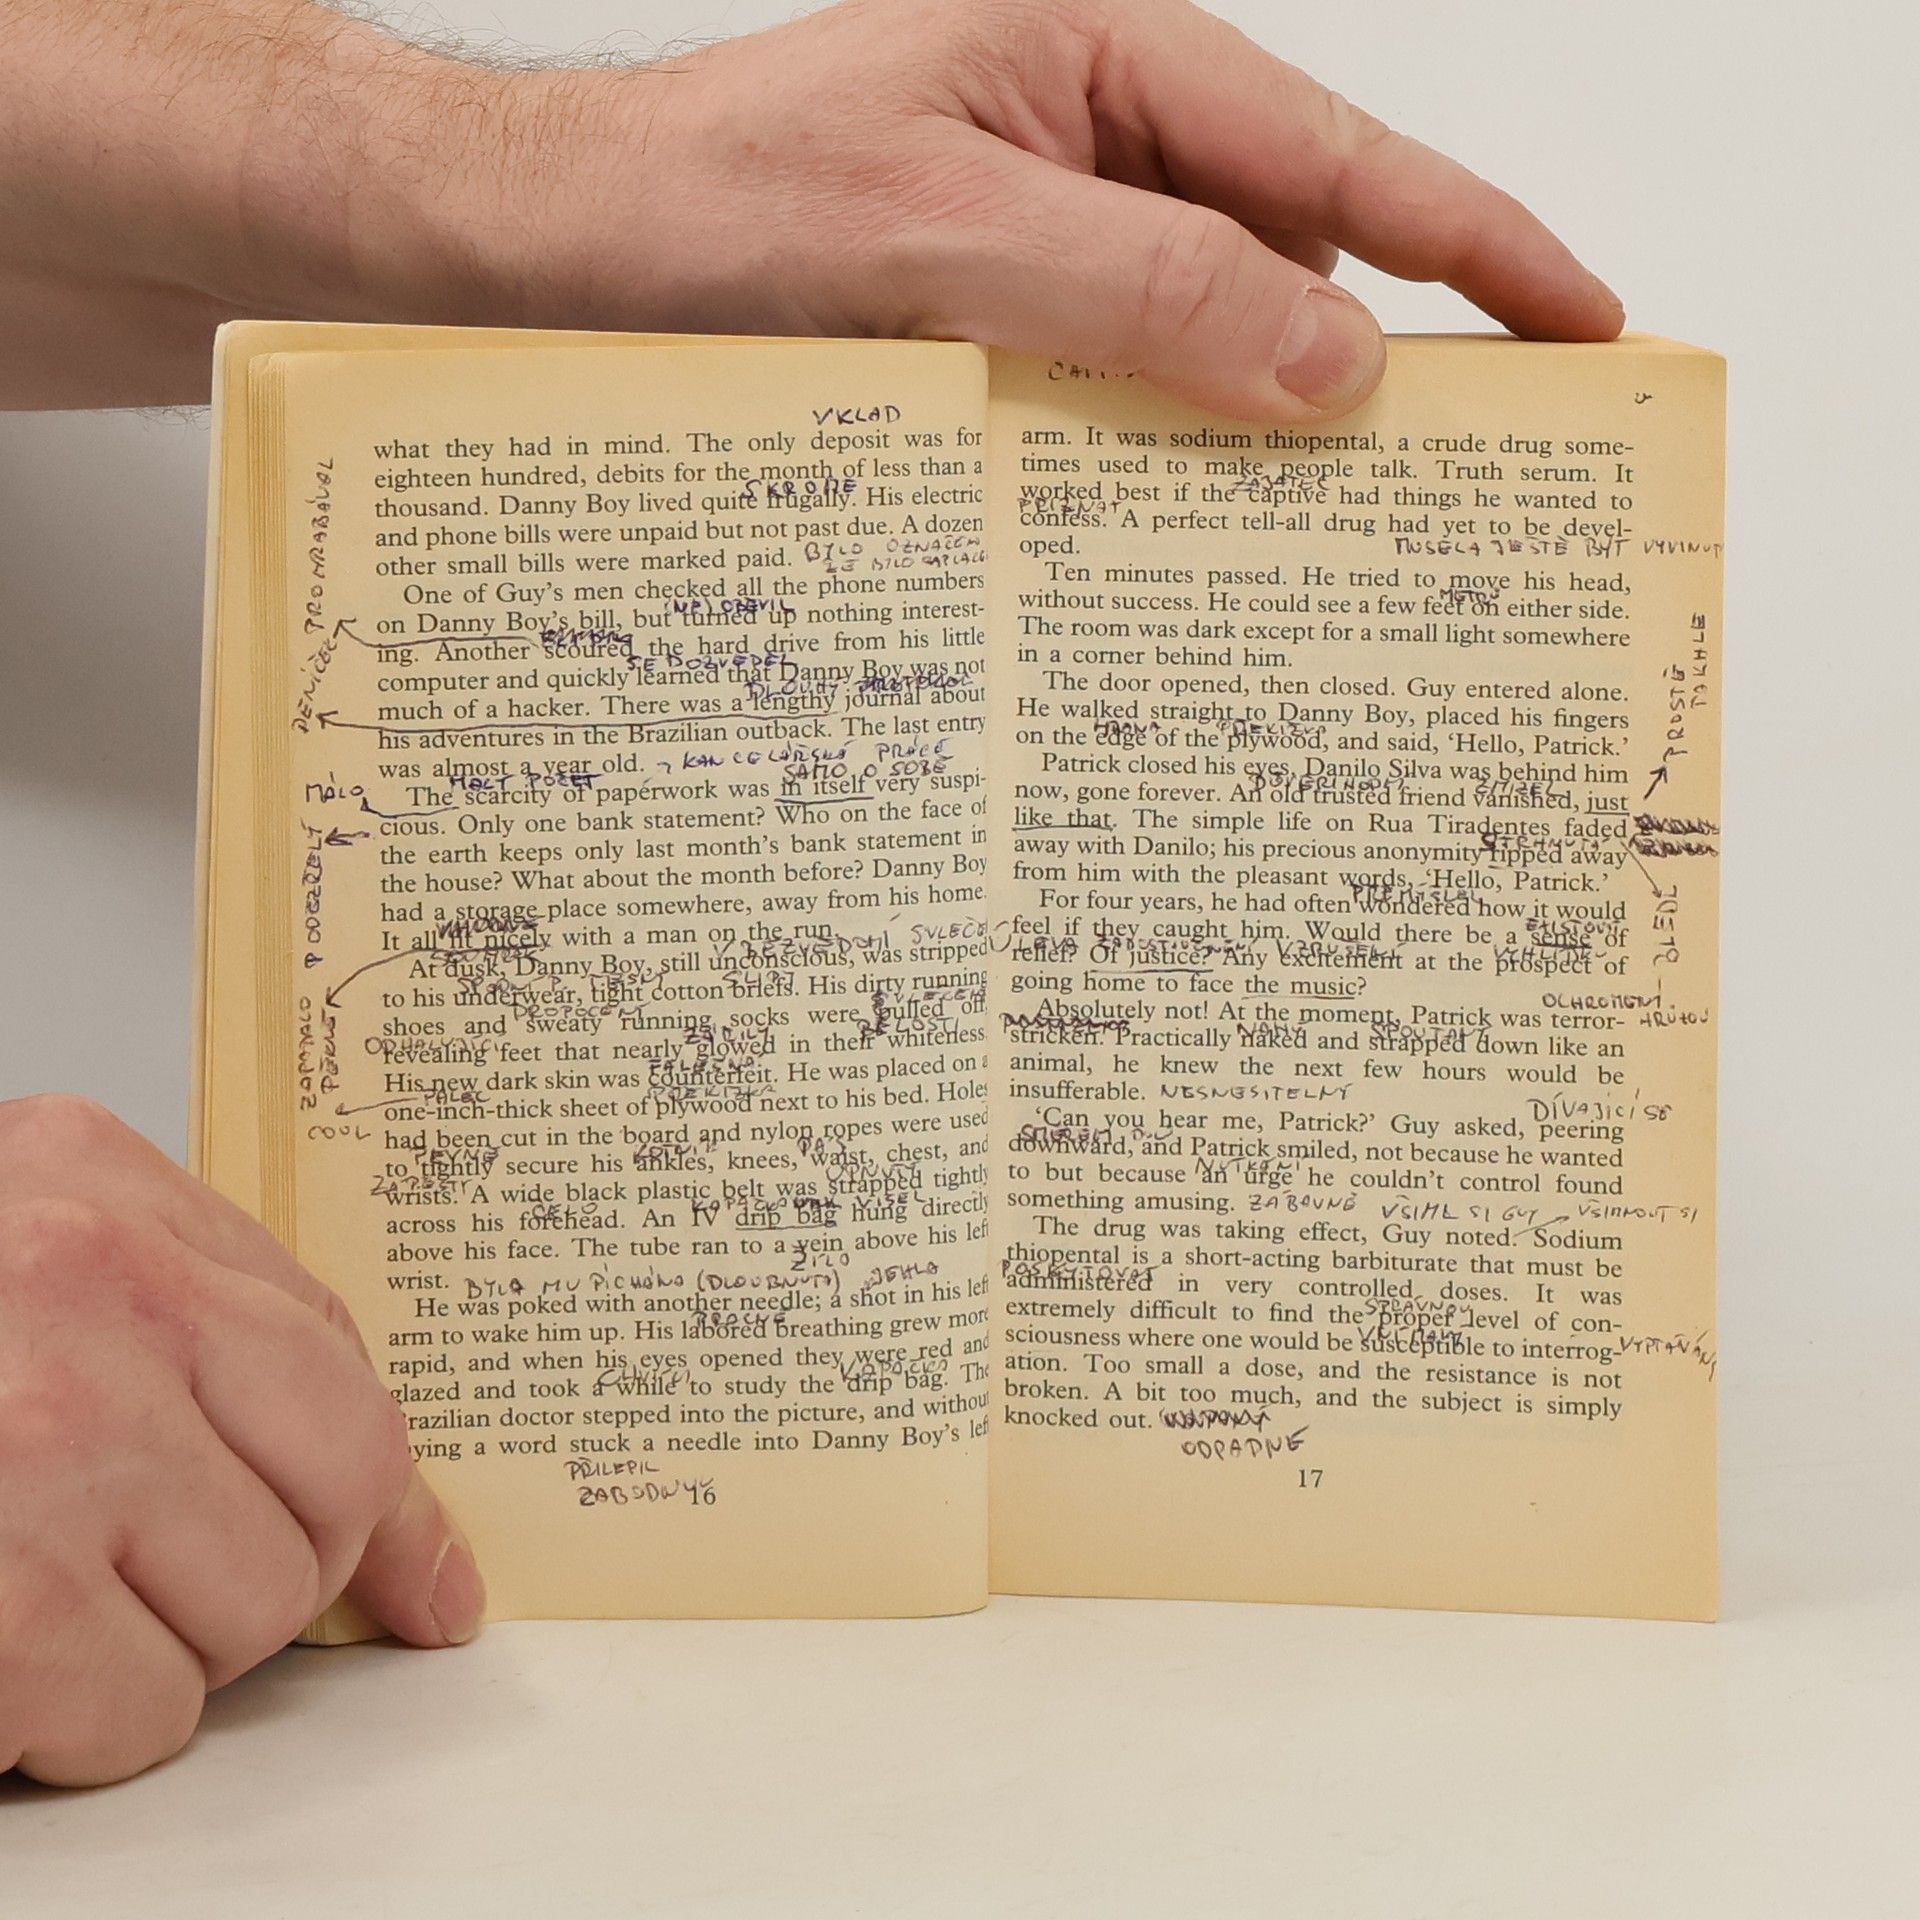 VKLAD
what they had in mind. The only deposit was for
eighteen hundred, debits for the month of less than a
SKROMĚ
thousand. Danny Boy lived quite frugally. His electric
and phone bills were unpaid but not past due. A dozen
other small bills were marked paid. BYLO OZNAČENO
ŽE BYLO ZAPLACENO
One of Guy's men checked all the phone numbers
(NE)OBJEVIL
on Danny Boy's bill, but turned up nothing interest-
ing. Another scoured the hard drive from his little
SE DOZVEDEL
computer and quickly learned that Danny Boy was not
DLOUHÝ
much of a hacker. There was a lengthy journal about
his adventures in the Brazilian outback. The last entry
was almost a year old. KANCELÁŘSKÁ PRÁCE
MALÝ POČET SAMO O SOBĚ
The scarcity of paperwork was in itself very suspi-
cious. Only one bank statement? Who on the face of
the earth keeps only last month's bank statement in
the house? What about the month before? Danny Boy
had a storage place somewhere, away from his home.
It all fit nicely with a man on the run.
V BEZVĚDOMÍ SVLEČEN
At dusk, Danny Boy, still unconscious, was stripped
SPODNÍ P. TĚSNÝ SLIPY
to his underwear, tight cotton briefs. His dirty running
PROPOCENÝ SVLEČENÁ
shoes and sweaty running socks were pulled off,
ODHALUJÍCÍ ZÁŘILY BĚLOSTÍ
revealing feet that nearly glowed in their whiteness.
FALEŠNÁ
His new dark skin was counterfeit. He was placed on a
PALEC PŘEKLIŽKA
one-inch-thick sheet of plywood next to his bed. Holes
had been cut in the board and nylon ropes were used
PEVNĚ KOTNÍK PAS
to tightly secure his ankles, knees, waist, chest, and
ZÁPĚSTÍ UPNUTÝ
wrists. A wide black plastic belt was strapped tightly
ČELO VISEL
across his forehead. An IV drip bag hung directly
above his face. The tube ran to a vein above his left
ŽÍLO
wrist. BYLA MU PÍCHÁNA (DLOUBNUTÁ) JEHLA
He was poked with another needle; a shot in his left
arm to wake him up. His labored breathing grew more
rapid, and when his eyes opened they were red and
CHVÍLI KAPAČKA
glazed and took a while to study the drip bag. The
razilian doctor stepped into the picture, and without
ying a word stuck a needle into Danny Boy's left
PŘILEPIL
ZABODNUL
16
PROMRABÁVAL
DENÍČEK
MÁLO
PODEZŘELÝ
ZAPADALO
PĚKNĚ
arm. It was sodium thiopental, a crude drug some-
times used to make people talk. Truth serum. It
ZAJATEC
worked best if the captive had things he wanted to
PŘIZNAT
confess. A perfect tell-all drug had yet to be devel-
oped. MUSELA JEŠTĚ BÝT VYVINUT
Ten minutes passed. He tried to move his head,
METRŮ
without success. He could see a few feet on either side.
The room was dark except for a small light somewhere
in a corner behind him.
The door opened, then closed. Guy entered alone.
He walked straight to Danny Boy, placed his fingers
HRANA PŘEKLIŽKA
on the edge of the plywood, and said, 'Hello, Patrick.'
Patrick closed his eyes. Danilo Silva was behind him
DŮVĚRIHODNÝ ZMIZEL
now, gone forever. An old trusted friend vanished, just
like that. The simple life on Rua Tiradentes faded
STRHNUTA
away with Danilo; his precious anonymity ripped away
from him with the pleasant words, 'Hello, Patrick.'
PŘEMÝŠLEL
For four years, he had often wondered how it would
feel if they caught him. Would there be a sense of
ÚLEVA ZADOSTIUČINĚNÍ VZRUŠENÍ
relief? Of justice? Any excitement at the prospect of
going home to face the music?
OCHROMENÝ HRŮZOU
Absolutely not! At the moment, Patrick was terror-
NAHÝ SPOUTANÝ
stricken. Practically naked and strapped down like an
animal, he knew the next few hours would be
insufferable. NESNESITELNÝ
DÍVAJÍCÍ SE
'Can you hear me, Patrick?' Guy asked, peering
SMĚREM DOLŮ
downward, and Patrick smiled, not because he wanted
NUTKÁNÍ
to but because an urge he couldn't control found
something amusing. ZÁBAVNÉ VŠIML SI GUY VŠIMNOUT SI
The drug was taking effect, Guy noted. Sodium
thiopental is a short-acting barbiturate that must be
POSKYTOVAT
administered in very controlled doses. It was
SPRÁVNOU
extremely difficult to find the proper level of con-
VNÍMAVÝ
sciousness where one would be susceptible to interrog-
ation. Too small a dose, and the resistance is not
broken. A bit too much, and the subject is simply
knocked out.
ODPADNE
17
PROSTĚ
TAKHLE